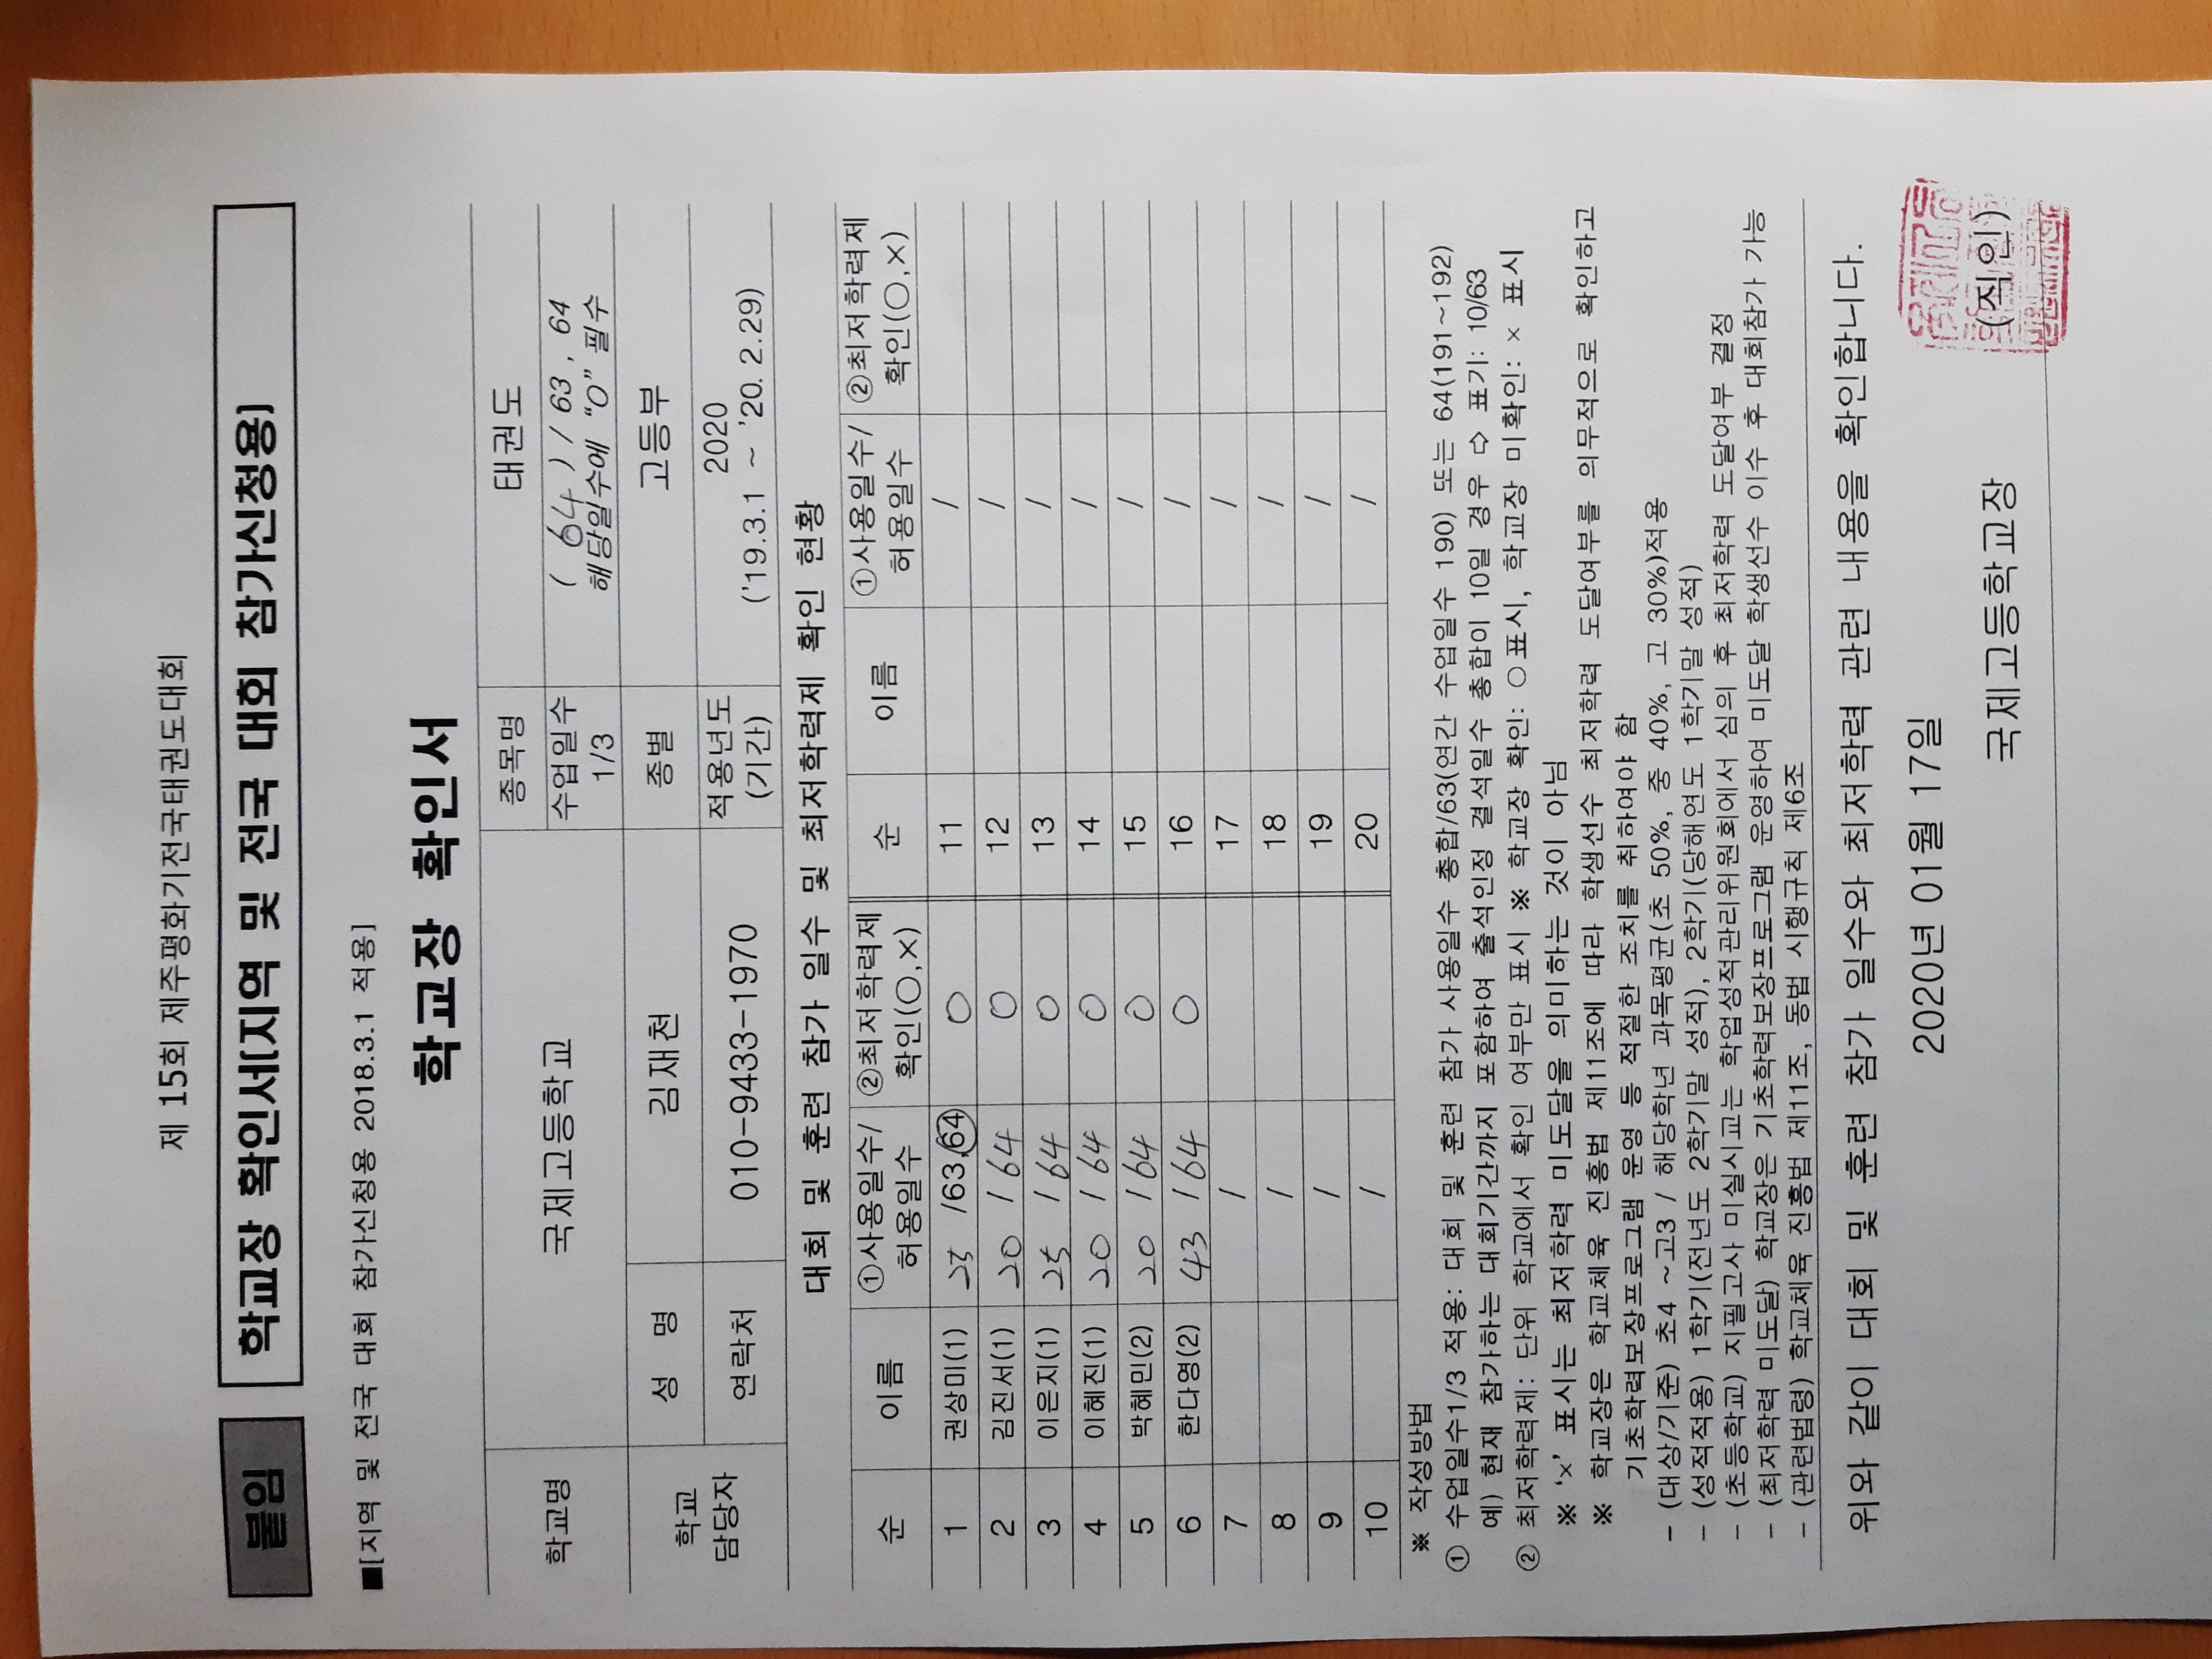 제 15회 제주평화기전국태권도대회
붙임 학교장 확인서[지역 및 전국 대회 참가신청용]
■[지역 및 전국 대회 참가신청용 2018.3.1 적용]
학교장 확인서
학교명 국제고등학교 종목명 태권도
수업일수 1/3 ( 64 ) / 63 , 64
해당일수에 “O” 필수
학교 담당자 성 명 김재천 종별 고등부
연락처 010-9433-1970 적용년도 (기간) 2020
('19.3.1 ~ '20. 2.29)
대회 및 훈련 참가 일수 및 최저학력제 확인 현황
순 이름 ①사용일수/ 허용일수 ②최저학력제 확인(○,×) 순 이름 ①사용일수/ 허용일수 ②최저학력제 확인(○,×)
1 권상미(1) 25 /63,64 ○ 11 /
2 김진서(1) 20 / 64 ○ 12 /
3 이은지(1) 25 / 64 ○ 13 /
4 이혜진(1) 20 / 64 ○ 14 /
5 박혜민(2) 20 / 64 ○ 15 /
6 한다영(2) 43 / 64 ○ 16 /
7 / 17 /
8 / 18 /
9 / 19 /
10 / 20 /
※ 작성방법
① 수업일수1/3 적용: 대회 및 훈련 참가 사용일수 총합/63(연간 수업일수 190) 또는 64(191~192)
예) 현재 참가하는 대회기간까지 포함하여 출석인정 결석일수 총합이 10일 경우 ⇨ 표기: 10/63
② 최저학력제: 단위 학교에서 확인 여부만 표시 ※ 학교장 확인: ○표시, 학교장 미확인: × 표시
※ ‘×’ 표시는 최저학력 미도달을 의미하는 것이 아님
※ 학교장은 학교체육 진흥법 제11조에 따라 학생선수 최저학력 도달여부를 의무적으로 확인하고
기초학력보장프로그램 운영 등 적절한 조치를 취하여야 함
- (대상/기준) 초4 ~고3 / 해당학년 과목평균(초 50%, 중 40%, 고 30%)적용
- (성적적용) 1학기(전년도 2학기말 성적), 2학기(당해연도 1학기말 성적)
- (초등학교) 지필고사 미실시교는 학업성적관리위원회에서 심의 후 최저학력 도달여부 결정
- (최저학력 미도달) 학교장은 기초학력보장프로그램 운영하여 미도달 학생선수 이수 후 대회참가 가능
- (관련법령) 학교체육 진흥법 제11조, 동법 시행규칙 제6조
위와 같이 대회 및 훈련 참가 일수와 최저학력 관련 내용을 확인합니다.
2020년 01월 17일
국제고등학교장 (직인)